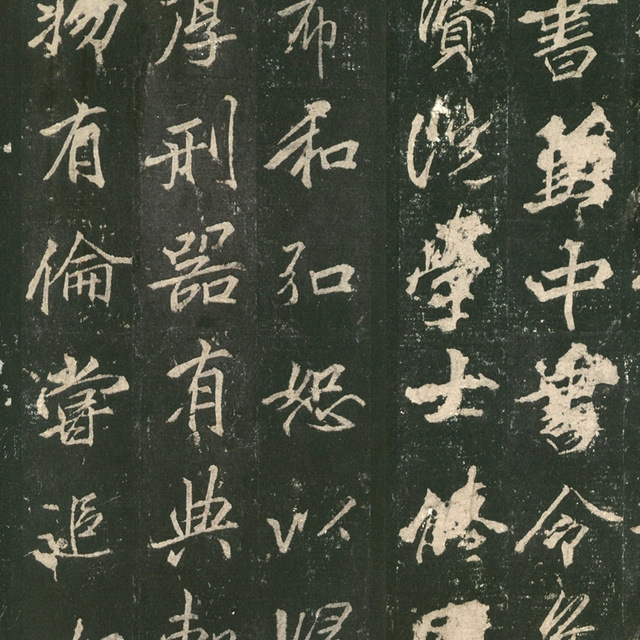 書兼中書令
賢院學士修國
布和弘恕以
淳刑器有典
物有倫嘗追